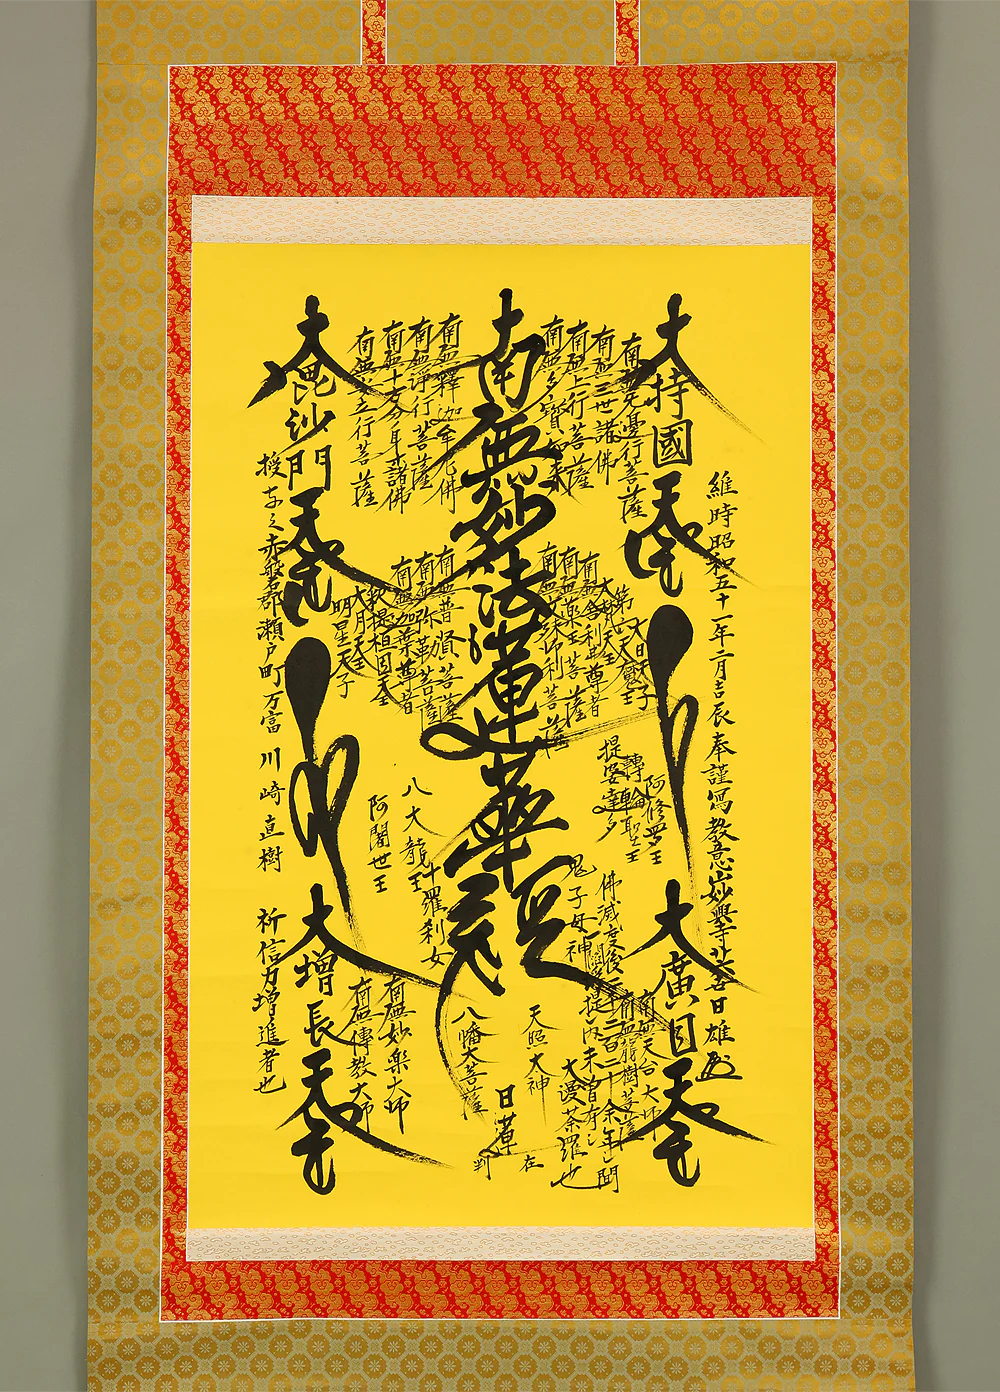 維時昭和五十一年二月吉辰奉謹寫教意山妙興寺廿六吉日雄
大持國天王
大廣目天王
南無無邊行菩薩
南無三世諸佛
南無上行菩薩
南無多寶如来
南無妙法蓮華経
南無釋迦牟尼佛
南無浄行菩薩
南無十方分身諸佛
南無安立行菩薩
大毘沙門天王
大日天子
第六天魔王
大梵天王
南無舎利弗尊者
南無薬王菩薩
南無文殊師利菩薩
南無普賢菩薩
南無弥勒菩薩
南無迦葉尊者
釈提桓因天王
大月天王
明星天子
阿修羅王
轉輪聖王
提婆達多
八大龍王
阿闍世王
鬼子母神
十羅刹女
佛滅度後二千二百二十余年間
一閻浮提内未曽有之
大漫荼羅也
南無天台大師
南無龍樹菩薩
天照大神
八幡大菩薩
南無妙楽大師
南無傳教大師
大増長天王
日蓮
在
判
授与之赤磐郡瀬戸町万富
川崎直樹
祈信力増進者也